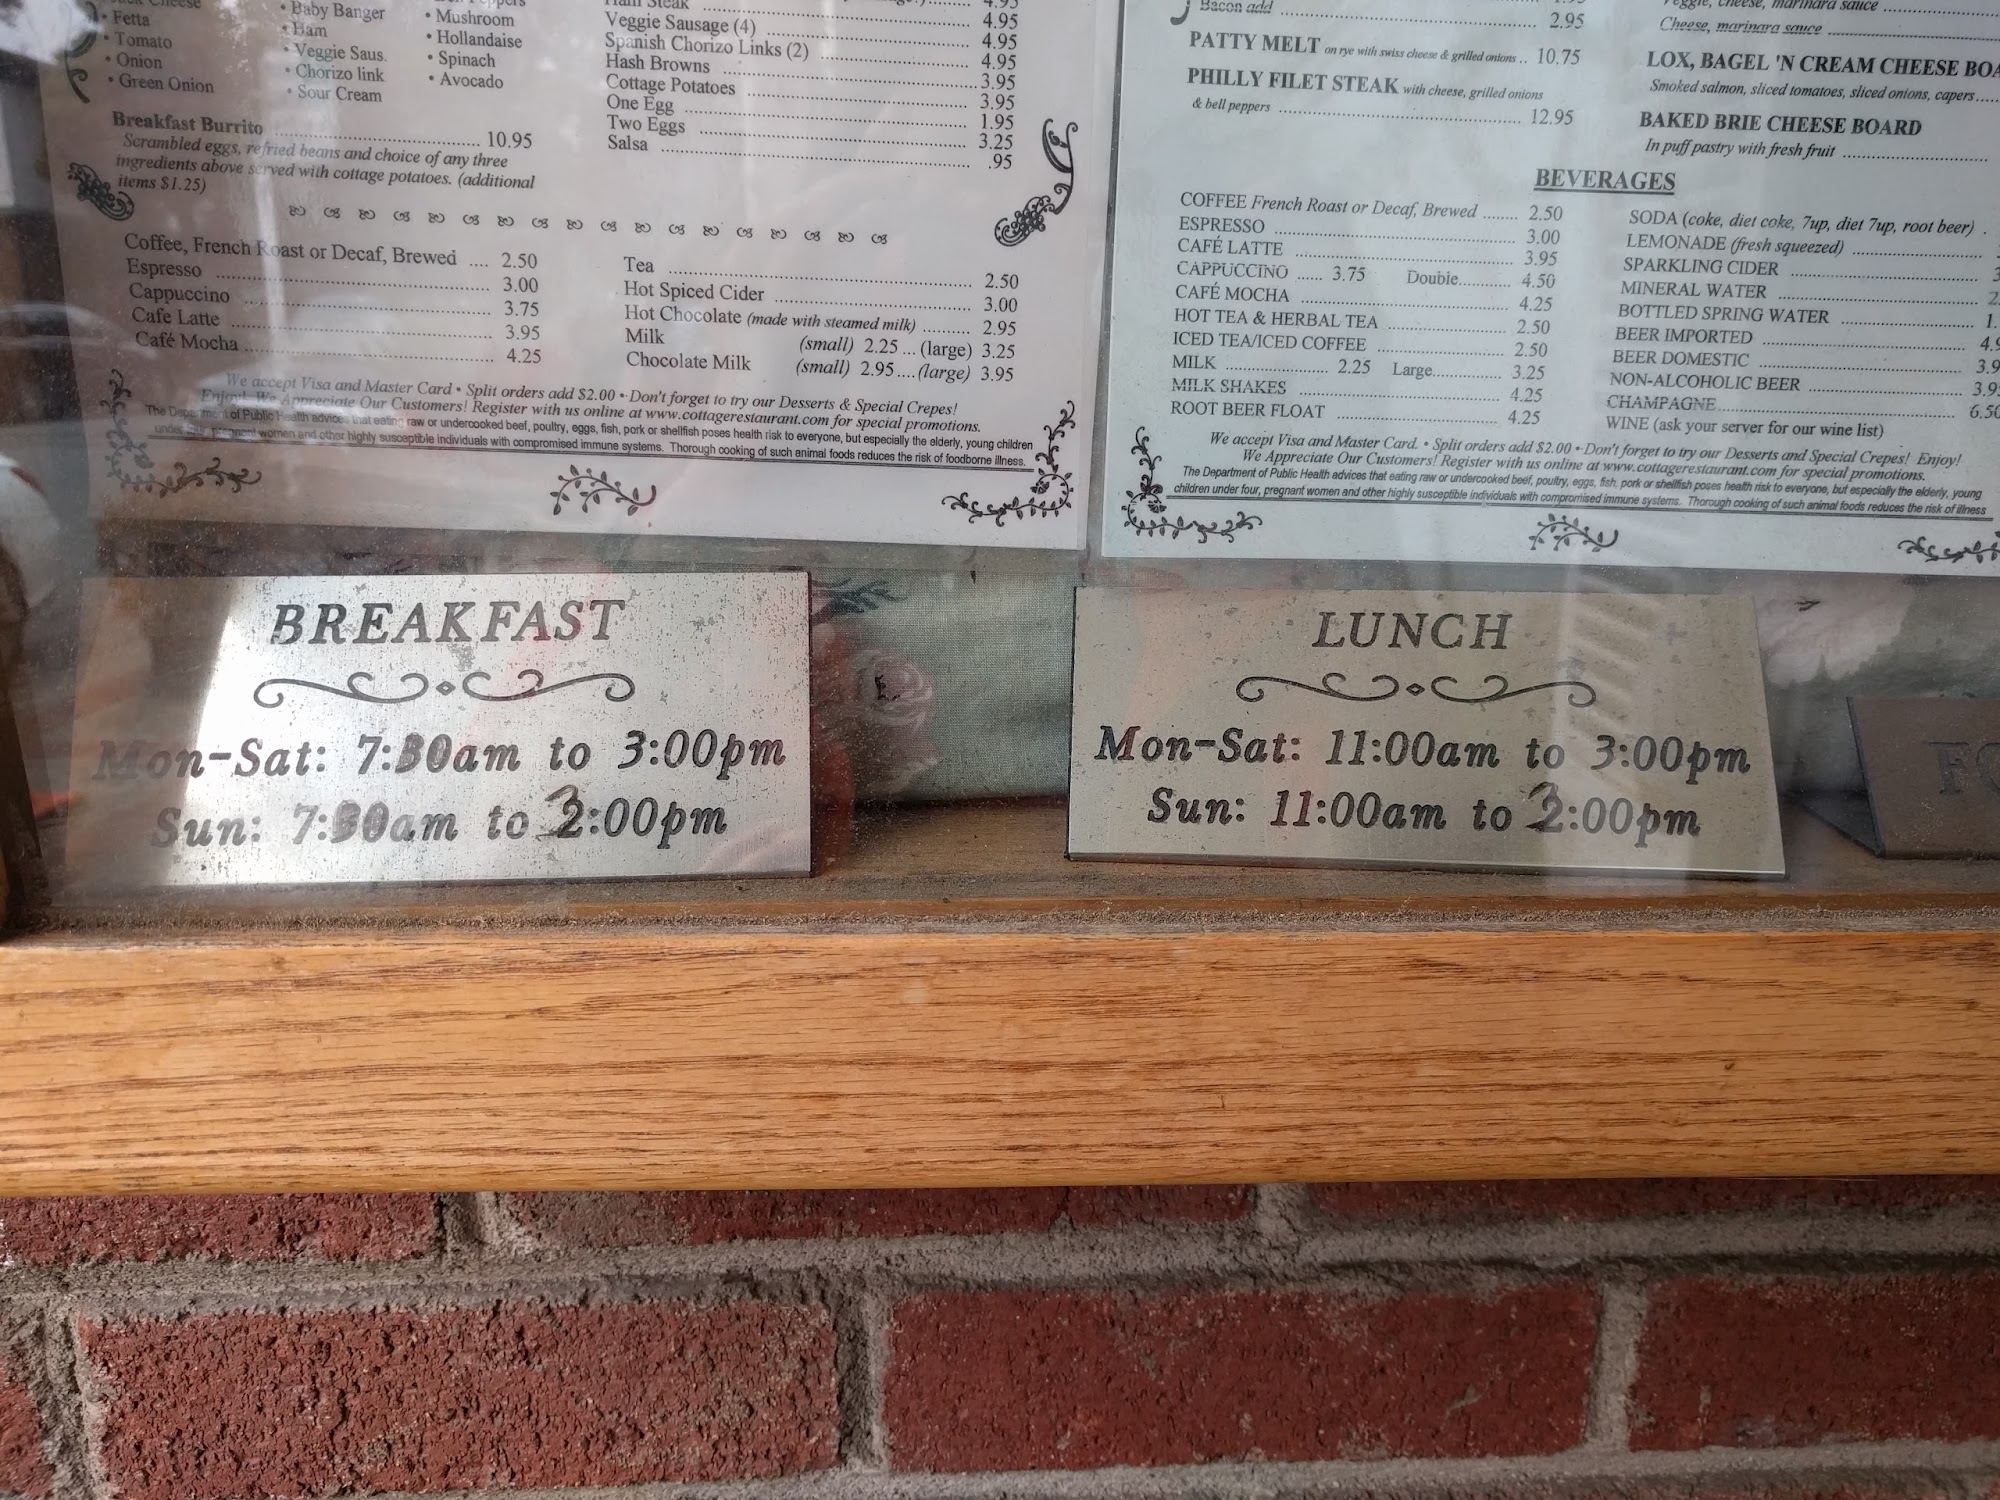 • Fetta
• Tomato
• Onion
• Green Onion
• Baby Banger
• Ham
• Veggie Saus.
• Chorizo link
• Sour Cream
• Mushroom
• Hollandaise
• Spinach
• Avocado
Breakfast Burrito 10.95
Scrambled eggs, refried beans and choice of any three
ingredients above served with cottage potatoes. (additional
items $1.25)
Ham Steak 4.95
Veggie Sausage (4) 4.95
Spanish Chorizo Links (2) 4.95
Hash Browns 4.95
Cottage Potatoes 3.95
One Egg 3.95
Two Eggs 1.95
Salsa 3.25
.95
Coffee, French Roast or Decaf, Brewed .... 2.50
Espresso 3.00
Cappuccino 3.75
Cafe Latte 3.95
Café Mocha 4.25
Tea 2.50
Hot Spiced Cider 3.00
Hot Chocolate (made with steamed milk) 2.95
Milk (small) 2.25 ... (large) 3.25
Chocolate Milk (small) 2.95 .... (large) 3.95
We accept Visa and Master Card • Split orders add $2.00 • Don't forget to try our Desserts & Special Crepes!
Enjoy! We Appreciate Our Customers! Register with us online at www.cottagerestaurant.com for special promotions.
The Department of Public Health advices that eating raw or undercooked beef, poultry, eggs, fish, pork or shellfish poses health risk to everyone, but especially the elderly, young children
under four, pregnant women and other highly susceptible individuals with compromised immune systems. Thorough cooking of such animal foods reduces the risk of foodborne illness.
Bacon add 2.95
PATTY MELT on rye with swiss cheese & grilled onions .. 10.75
PHILLY FILET STEAK with cheese, grilled onions
& bell peppers 12.95
Veggie, cheese, marinara sauce
Cheese, marinara sauce
LOX, BAGEL 'N CREAM CHEESE
Smoked salmon, sliced tomatoes, sliced onions, capers
BAKED BRIE CHEESE BOARD
In puff pastry with fresh fruit
BEVERAGES
COFFEE French Roast or Decaf, Brewed 2.50
ESPRESSO 3.00
CAFÉ LATTE 3.95
CAPPUCCINO ...... 3.75 Double 4.50
CAFÉ MOCHA 4.25
HOT TEA & HERBAL TEA 2.50
ICED TEA/ICED COFFEE 2.50
MILK 2.25 Large 3.25
MILK SHAKES 4.25
ROOT BEER FLOAT 4.25
SODA (coke, diet coke, 7up, diet 7up, root beer)
LEMONADE (fresh squeezed)
SPARKLING CIDER
MINERAL WATER
BOTTLED SPRING WATER
BEER IMPORTED
BEER DOMESTIC
NON-ALCOHOLIC BEER
CHAMPAGNE 6.50
WINE (ask your server for our wine list)
We accept Visa and Master Card. • Split orders add $2.00 • Don't forget to try our Desserts and Special Crepes! Enjoy!
We Appreciate Our Customers! Register with us online at www.cottagerestaurant.com for special promotions.
The Department of Public Health advices that eating raw or undercooked beef, poultry, eggs, fish, pork or shellfish poses health risk to everyone, but especially the elderly, young
children under four, pregnant women and other highly susceptible individuals with compromised immune systems. Thorough cooking of such animal foods reduces the risk of illness
BREAKFAST
Mon-Sat: 7:30am to 3:00pm
Sun: 7:30am to 3:00pm
LUNCH
Mon-Sat: 11:00am to 3:00pm
Sun: 11:00am to 3:00pm